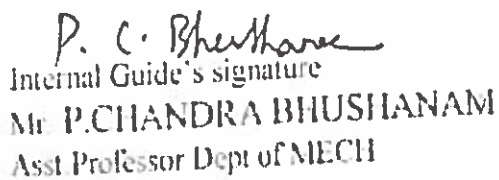 P. C. Bhushanam
Internal Guide's signature
Mr. P.CHANDRA BHUSHANAM
Asst.Professor Dept of MECH